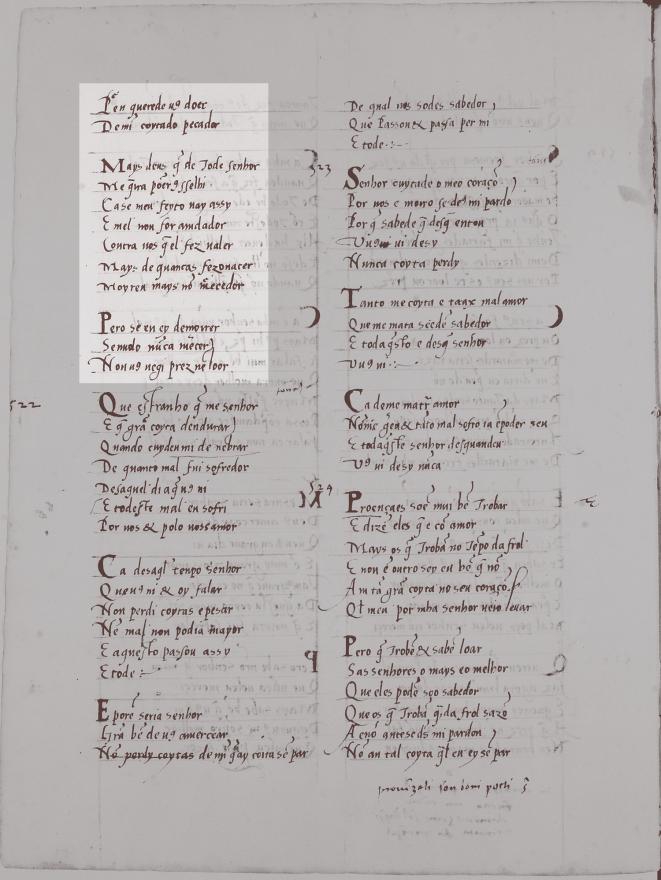 Pen querede uꝯ doer
De mi coytado pecador
Mays deus q̄ de Tode senhor
Me q̄ra poer ꝯsselhi
Ca se meu feyto uay assy
E mel nom for aiudador
Contra uos q̄ el fez ualer
Mays de quantas fezo nacer
Moyrer mays nō merecedor
Pero se en ey demorrer
Sen uolo nūca merecer
Non uꝯ uegi prez nē loor
522
Que estranho q̄ me senhor
E q̄ grā coyta dendurar
Quando cuyden mi de nebrar
De quanto mal fui sofredor
Desaquel dia q̄ uꝯ ui
E todeste mal eu sofri
Por uos & polo uoss amor
Ca desaq̄l tenpo senhor
Que uꝯ ui & oy falar
Non perdi coytas e pesar
Nē mal non podia mayor
E aquesto passou assy
E tode
E por ē seria senhor
Grā bē de uꝯ amercear
Nō perdy coytas de mi q̄ ay coita sē par
De qual uos sodes sabedor
Que passou & passa per mi
E tode
523
Senhor cuytado o meu coraçō
Por uos e moiro se deꝯ mi pardo
Por q̄ sabede q̄ desq̄ entou
Vuꝯ ui desy
Nunca coyta perdy
Tanto me coyta e mal amor
Que me mata seede sabedor
E todaq̄sto e desq̄ senhor
Vuꝯ ui
Ca de me matar amor
E todaq̄ste senhor desquandeu
Vꝯ ui desy nūca
524
Proençaes soē mui bē Trobar
E dizē eles q̄ e cō amor
Mays os q̄ Trobā no Tēpo da frol
E non ē outro sey eu bē q̄ nō
Am tā grā coyta no seu coraçō
Ql̄ meu por mha senhor ueio leuar
Pero q̄ Trobā & sabē loar
Sas senhores o mays e o melhor
Que eles podē sōo sabedor
Que os q̄ Trobā q̄nda frol sazō
A e nō ante se dꝯ mi pardon
Nō an tal coyta ql̄ eu ey sē par